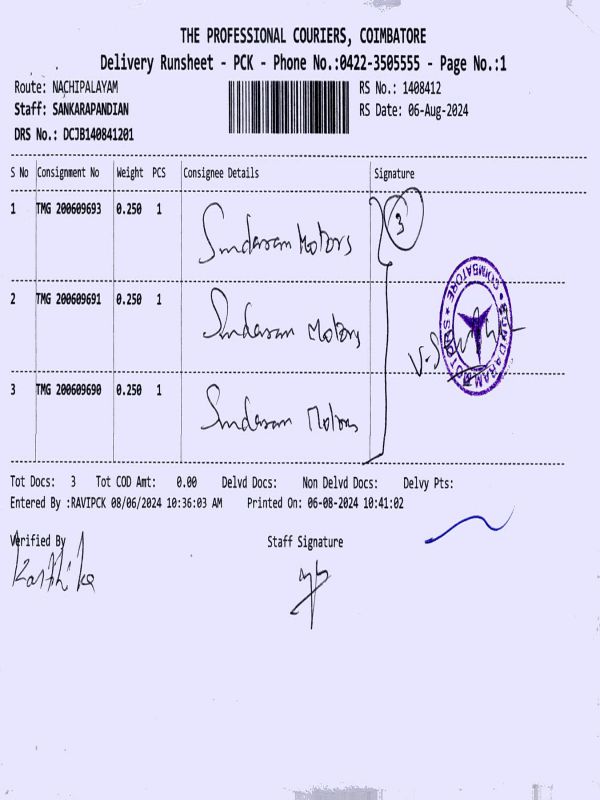 THE PROFESSIONAL COURIERS, COIMBATORE
Delivery Runsheet - PCK - Phone No.:0422-3505555 - Page No.:1
Route: NACHIPALAYAM RS No.: 1408412
Staff: SANKARAPANDIAN RS Date: 06-Aug-2024
DRS No.: DCJB140841201
S No Consignment No Weight PCS Consignee Details Signature
1 TMG 200609693 0.250 1 Sundaram Motors 3
2 TMG 200609691 0.250 1 Sundaram Motors
3 TMG 200609690 0.250 1 Sundaram Motors
SUNDARAM MOTORS COIMBATORE
Tot Docs: 3 Tot COD Amt: 0.00 Delvd Docs: Non Delvd Docs: Delvy Pts:
Entered By :RAVIPCK 08/06/2024 10:36:03 AM Printed On: 06-08-2024 10:41:02
Verified By Staff Signature
Karthika